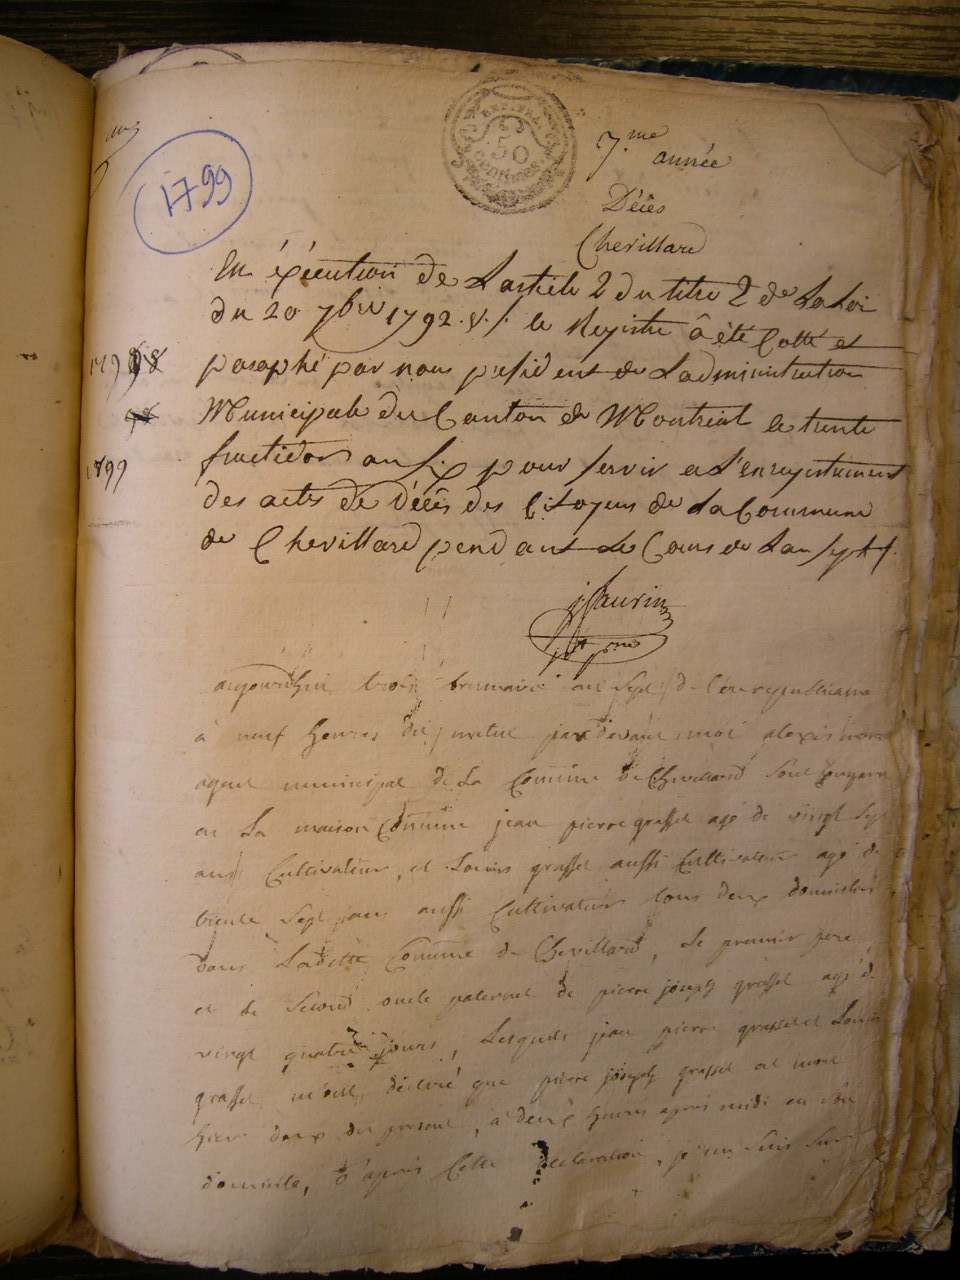 1799
REP. FRA.
50
centimes
7.me année
Décès
Chevillard
En éxécution de L'article 2 du titre 2 de La Loi
du 20 7bre 1792 v. s. le Registre â été Cotté et
paraphé par nous président de L'administration
1798
Municipale du Canton de Montréal le trente
1799
fructidor an six pour servir a L'enregistrement
des actes de Décès des Citoyens de La Commune
de Chevillard pendant Le Cours de L'an sept.
j. Saurin
pdt
aujourdhui trois brumaire an Sept de l'ère republicaine
à neuf heures du matin par devant moi alexis
agent municipal de La Comune de Chevillard Sont Comparu
en La maison Comune jean pierre grassel agé de vingt Sept
ans Cultivateur, et Louis grassel aussi Cultivateur agé de
trente Sept ans aussi Cultivateur tous deux domiciliés
dans Ladite Comune de Chevillard, Le premier pere,
et le Second oncle paternel de pierre joseph grassel agé de
vingt quatre jours, Lesquels jean pierre grassel et Louis
grassel m'ont déclaré que pierre joseph grassel est mort
hier deux du présent, à deux heures après midi en Son
domicile, d'après Cette declaration, je me Suis Sur